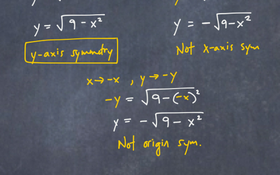 y = √9 - x²
y = -√9-x²
y-axis symmetry
Not x-axis sym
x → -x , y → -y
-y = √9-(-x)²
y = -√9 - x²
Not origin sym.